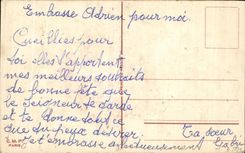 Embrasse Adrien pour moi.
Cueillies pour
toi elles t'apportent
mes meilleurs souhaits
de bonne fête que
le Seigneur te garde
et te donne tout ce
que tu peux désirer.
Je t'embrasse affectueusement
Ta sœur
PARIS